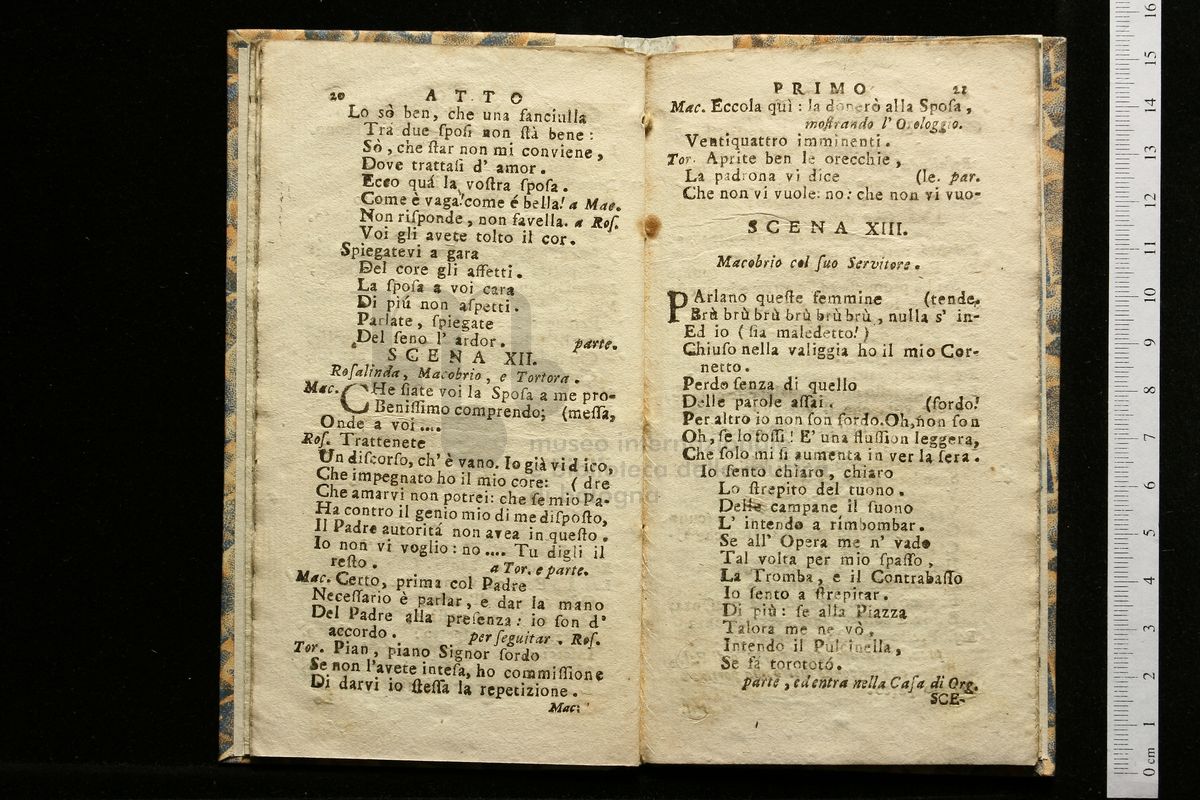 20 ATTO
Lo sò ben, che una fanciulla
Tra due ſpoſi non ſtà bene:
Sò, che ſtar non mi conviene,
Dove trattaſi d' amor.
Ecco quá la voſtra ſpoſa.
Come è vaga! come é bella! a Mac.
Non riſponde, non favella. a Roſ.
Voi gli avete tolto il cor.
Spiegatevi a gara
Del core gli affetti.
La ſpoſa a voi cara
Di piú non aſpetti.
Parlate, ſpiegate
Del ſeno l' ardor. parte.
SCENA XII.
Roſalinda, Macobrio, e Tortora.
Mac. CHe ſiate voi la Spoſa a me pro-
Beniſſimo comprendo; (meſſa,
Onde a voi ....
Roſ. Trattenete
Un diſcorſo, ch' è vano. Io già vid ico,
Che impegnato ho il mio core: ( dre
Che amarvi non potrei: che ſe mio Pa-
Ha contro il genio mio di me diſpoſto,
Il Padre autoritá non avea in queſto.
Io non vi voglio: no .... Tu digli il
reſto. a Tor. e parte.
Mac. Certo, prima col Padre
Neceſſario è parlar, e dar la mano
Del Padre alla preſenza: io ſon d'
accordo. per ſeguitar. Roſ.
Tor. Pian, piano Signor ſordo
Se non l'avete inteſa, ho commiſſione
Di darvi io ſteſſa la repetizione.
Mac:
PRIMO 21
Mac. Eccola quì: la donerò alla Spoſa,
moſtrando l' Orologgio.
Ventiquattro imminenti.
Tor. Aprite ben le orecchie,
La padrona vi dice (le. par.
Che non vi vuole: no: che non vi vuo-
SCENA XIII.
Macobrio col ſuo Servitore.
PArlano queſte femmine (tende.
Brù brù brù brù brù brù, nulla s' in-
Ed io ( ſia maledetto! )
Chiuſo nella valiggia ho il mio Cor-
netto.
Perdo ſenza di quello
Delle parole aſſai. (ſordo!
Per altro io non ſon ſordo. Oh, non ſon
Oh, ſe lo foſſi! E' una fluſſion leggera,
Che ſolo mi ſi aumenta in ver la ſera.
Io ſento chiaro, chiaro
Lo ſtrepito del tuono.
Delle campane il ſuono
L' intendo a rimbombar.
Se all' Opera me n' vado
Tal volta per mio ſpaſſo,
La Tromba, e il Contrabaſſo
Io ſento a ſtrepitar.
Di più: ſe alla Piazza
Talora me ne vò,
Intendo il Pulcinella,
Se fà torototó.
parte, ed entra nella Caſa di Org.
SCE-
museo internazionale
biblioteca della musica
bologna
0 cm 1 2 3 4 5 6 7 8 9 10 11 12 13 14 15 16